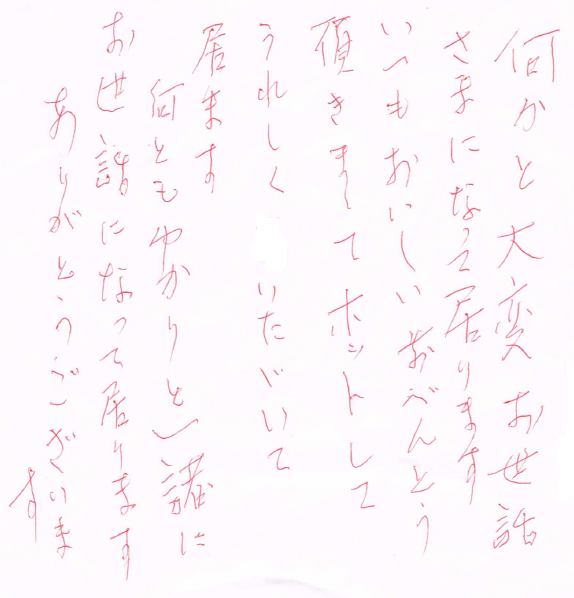 何かと大変お世話
さまになって居ります
いつもおいしいおべんとう
頂きましてホットして
うれしく いただいて
居ます
何ともゆかりと一諸に
お世話になって居ります
ありがとうございま
す